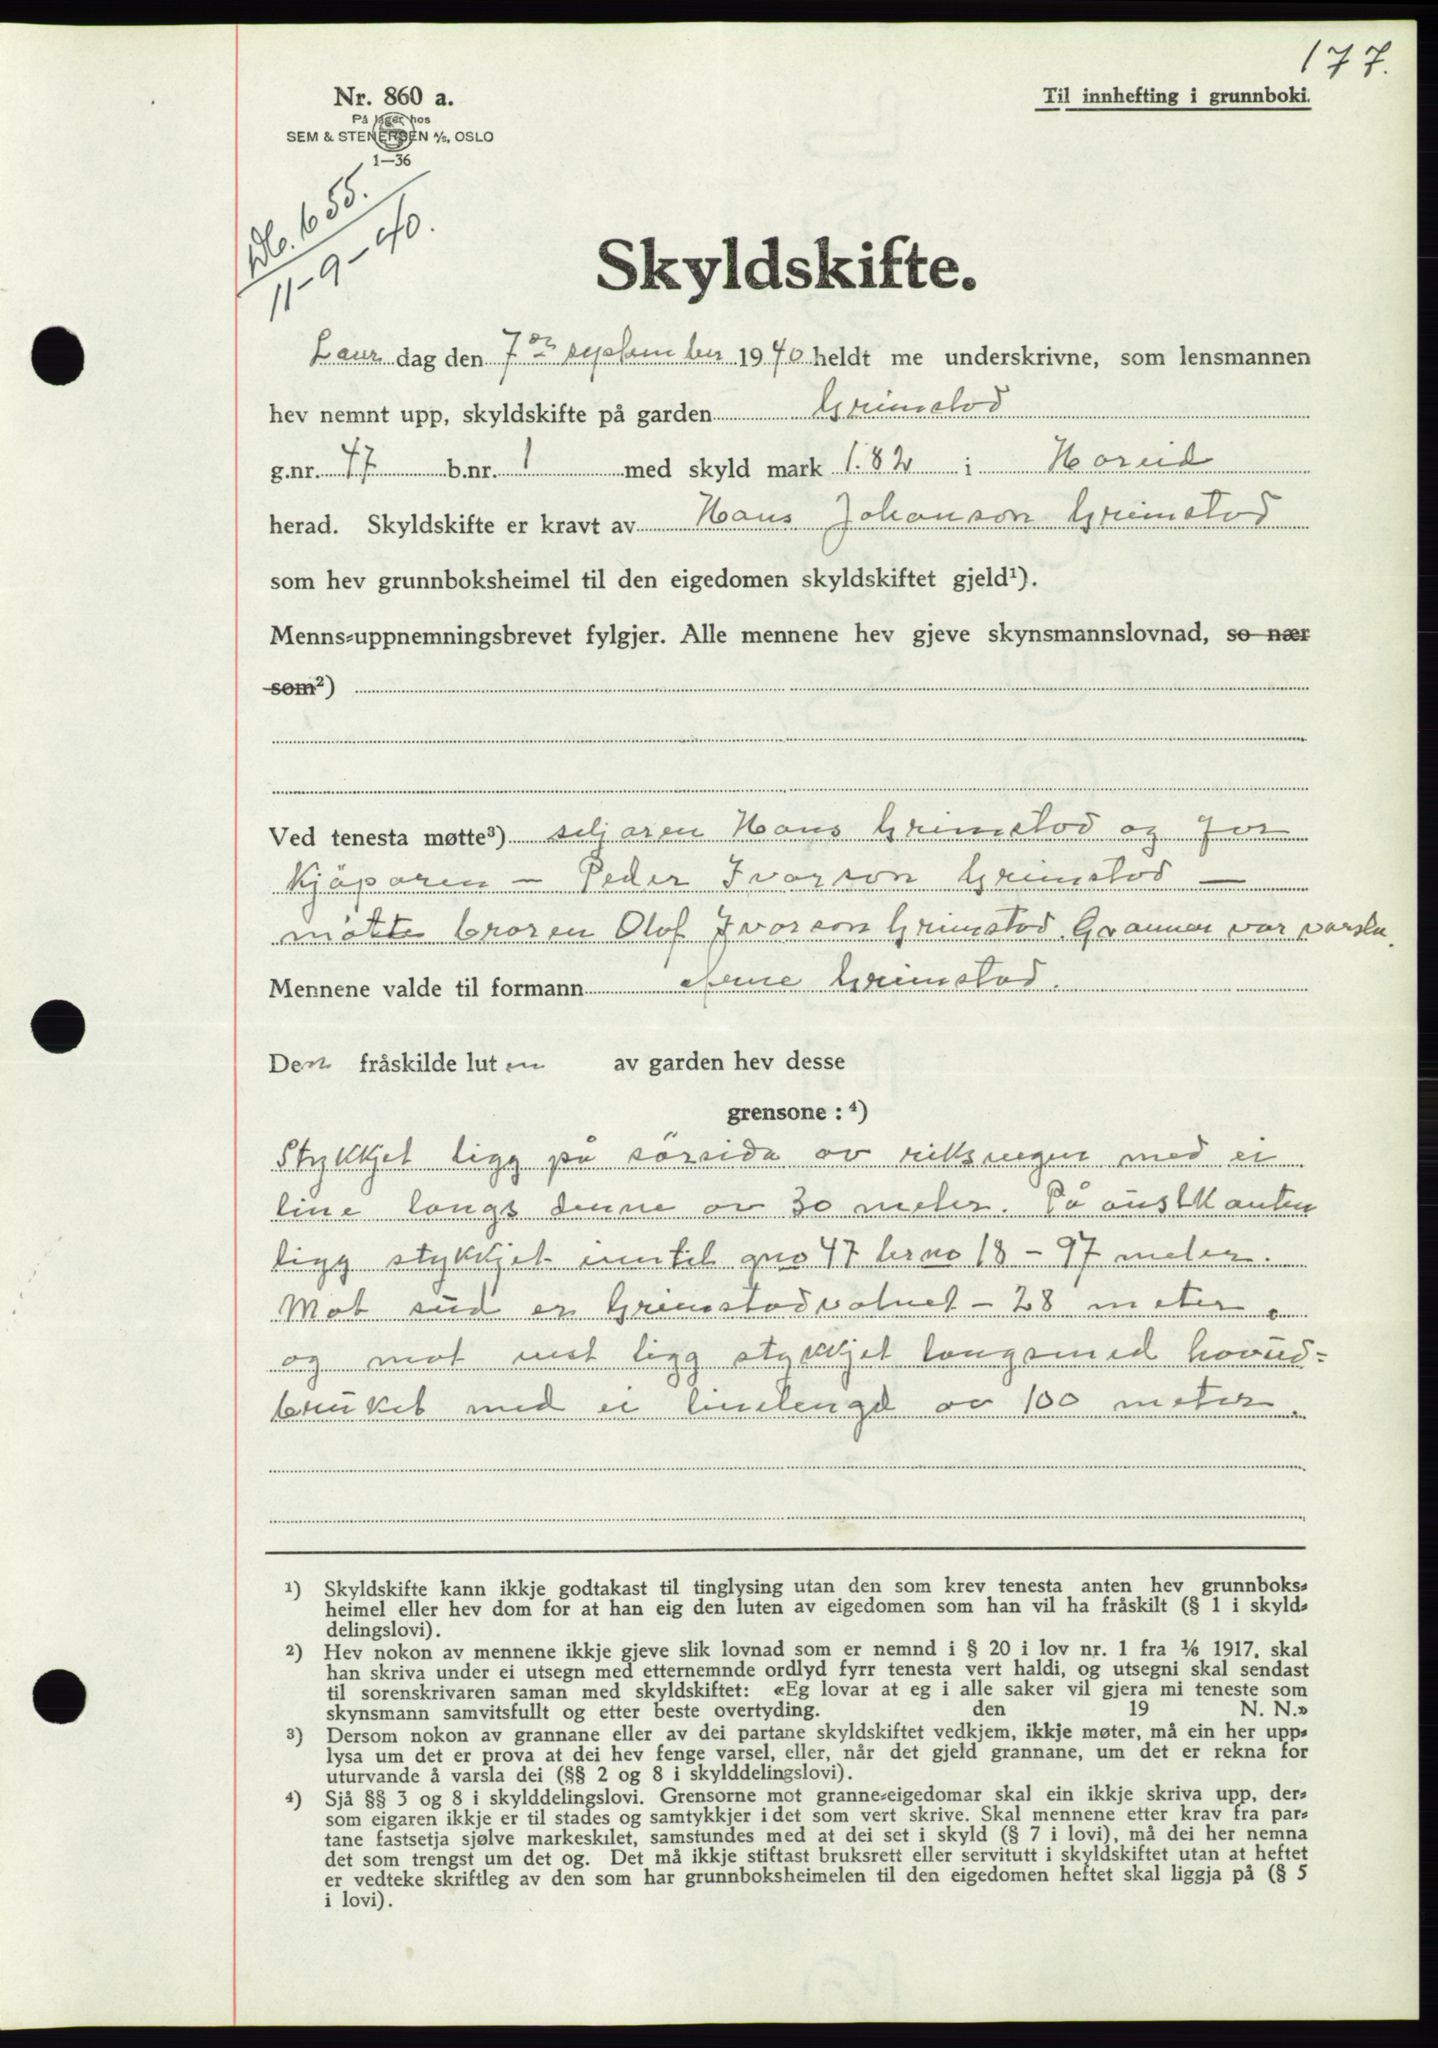 177.
Nr. 860 a.
På lager hos
SEM & STENERSEN A/S, OSLO
1—36
Til innhefting i grunnboki.
Db. 655.
11-9-40.
Skyldskifte.
Laur dag den 7de september 1940 heldt me underskrivne, som lensmannen
hev nemnt upp, skyldskifte på garden Grimstad
g.nr. 47 b.nr. 1 med skyld mark 1.82 i Hareid
herad. Skyldskifte er kravt av Hans Johanson Grimstad
som hev grunnboksheimel til den eigedomen skyldskiftet gjeld¹).
Menns-uppnemningsbrevet fylgjer. Alle mennene hev gjeve skynsmannslovnad, so nær
som²)
Ved tenesta møtte³) seljaren Hans Grimstad og for
Kjöparen - Peder Ivarson Grimstad -
møtte broren Olaf Ivarson Grimstad. Grannar var varsla.
Mennene valde til formann Arne Grimstad.
Den fråskilde luten av garden hev desse
grensone : ⁴)
Stykkjet ligg på sörsida av riksvegen med ei
line langs denne av 30 meter. På austkanten
ligg stykkjet inntil gno 47 brno 18 - 97 meter.
Mot sud er Grimstadvatnet - 28 meter.
og mot vest ligg stykkjet langsmed hovud=
bruket med ei linelengd av 100 meter.
¹) Skyldskifte kann ikkje godtakast til tinglysing utan den som krev tenesta anten hev grunnboks-
heimel eller hev dom for at han eig den luten av eigedomen som han vil ha fråskilt (§ 1 i skyld-
delingslovi).
²) Hev nokon av mennene ikkje gjeve slik lovnad som er nemnd i § 20 i lov nr. 1 fra 1/6 1917, skal
han skriva under ei utsegn med etternemnde ordlyd fyrr tenesta vert haldi, og utsegni skal sendast
til sorenskrivaren saman med skyldskiftet: «Eg lovar at eg i alle saker vil gjera mi teneste som
skynsmann samvitsfullt og etter beste overtyding. den 19 N. N.»
³) Dersom nokon av grannane eller av dei partane skyldskiftet vedkjem, ikkje møter, må ein her upp-
lysa um det er prova at dei hev fenge varsel, eller, når det gjeld grannane, um det er rekna for
uturvande å varsla dei (§§ 2 og 8 i skylddelingslovi).
⁴) Sjå §§ 3 og 8 i skylddelingslovi. Grensorne mot granne-eigedomar skal ein ikkje skriva upp, der-
som eigaren ikkje er til stades og samtykkjer i det som vert skrive. Skal mennene etter krav fra par-
tane fastsetja sjølve markeskilet, samstundes med at dei set i skyld (§ 7 i lovi), må dei her nemna
det som trengst um det og. Det må ikkje stiftast bruksrett eller servitutt i skyldskiftet utan at heftet
er vedteke skriftleg av den som har grunnboksheimelen til den eigedomen heftet skal liggja på (§ 5
i lovi).